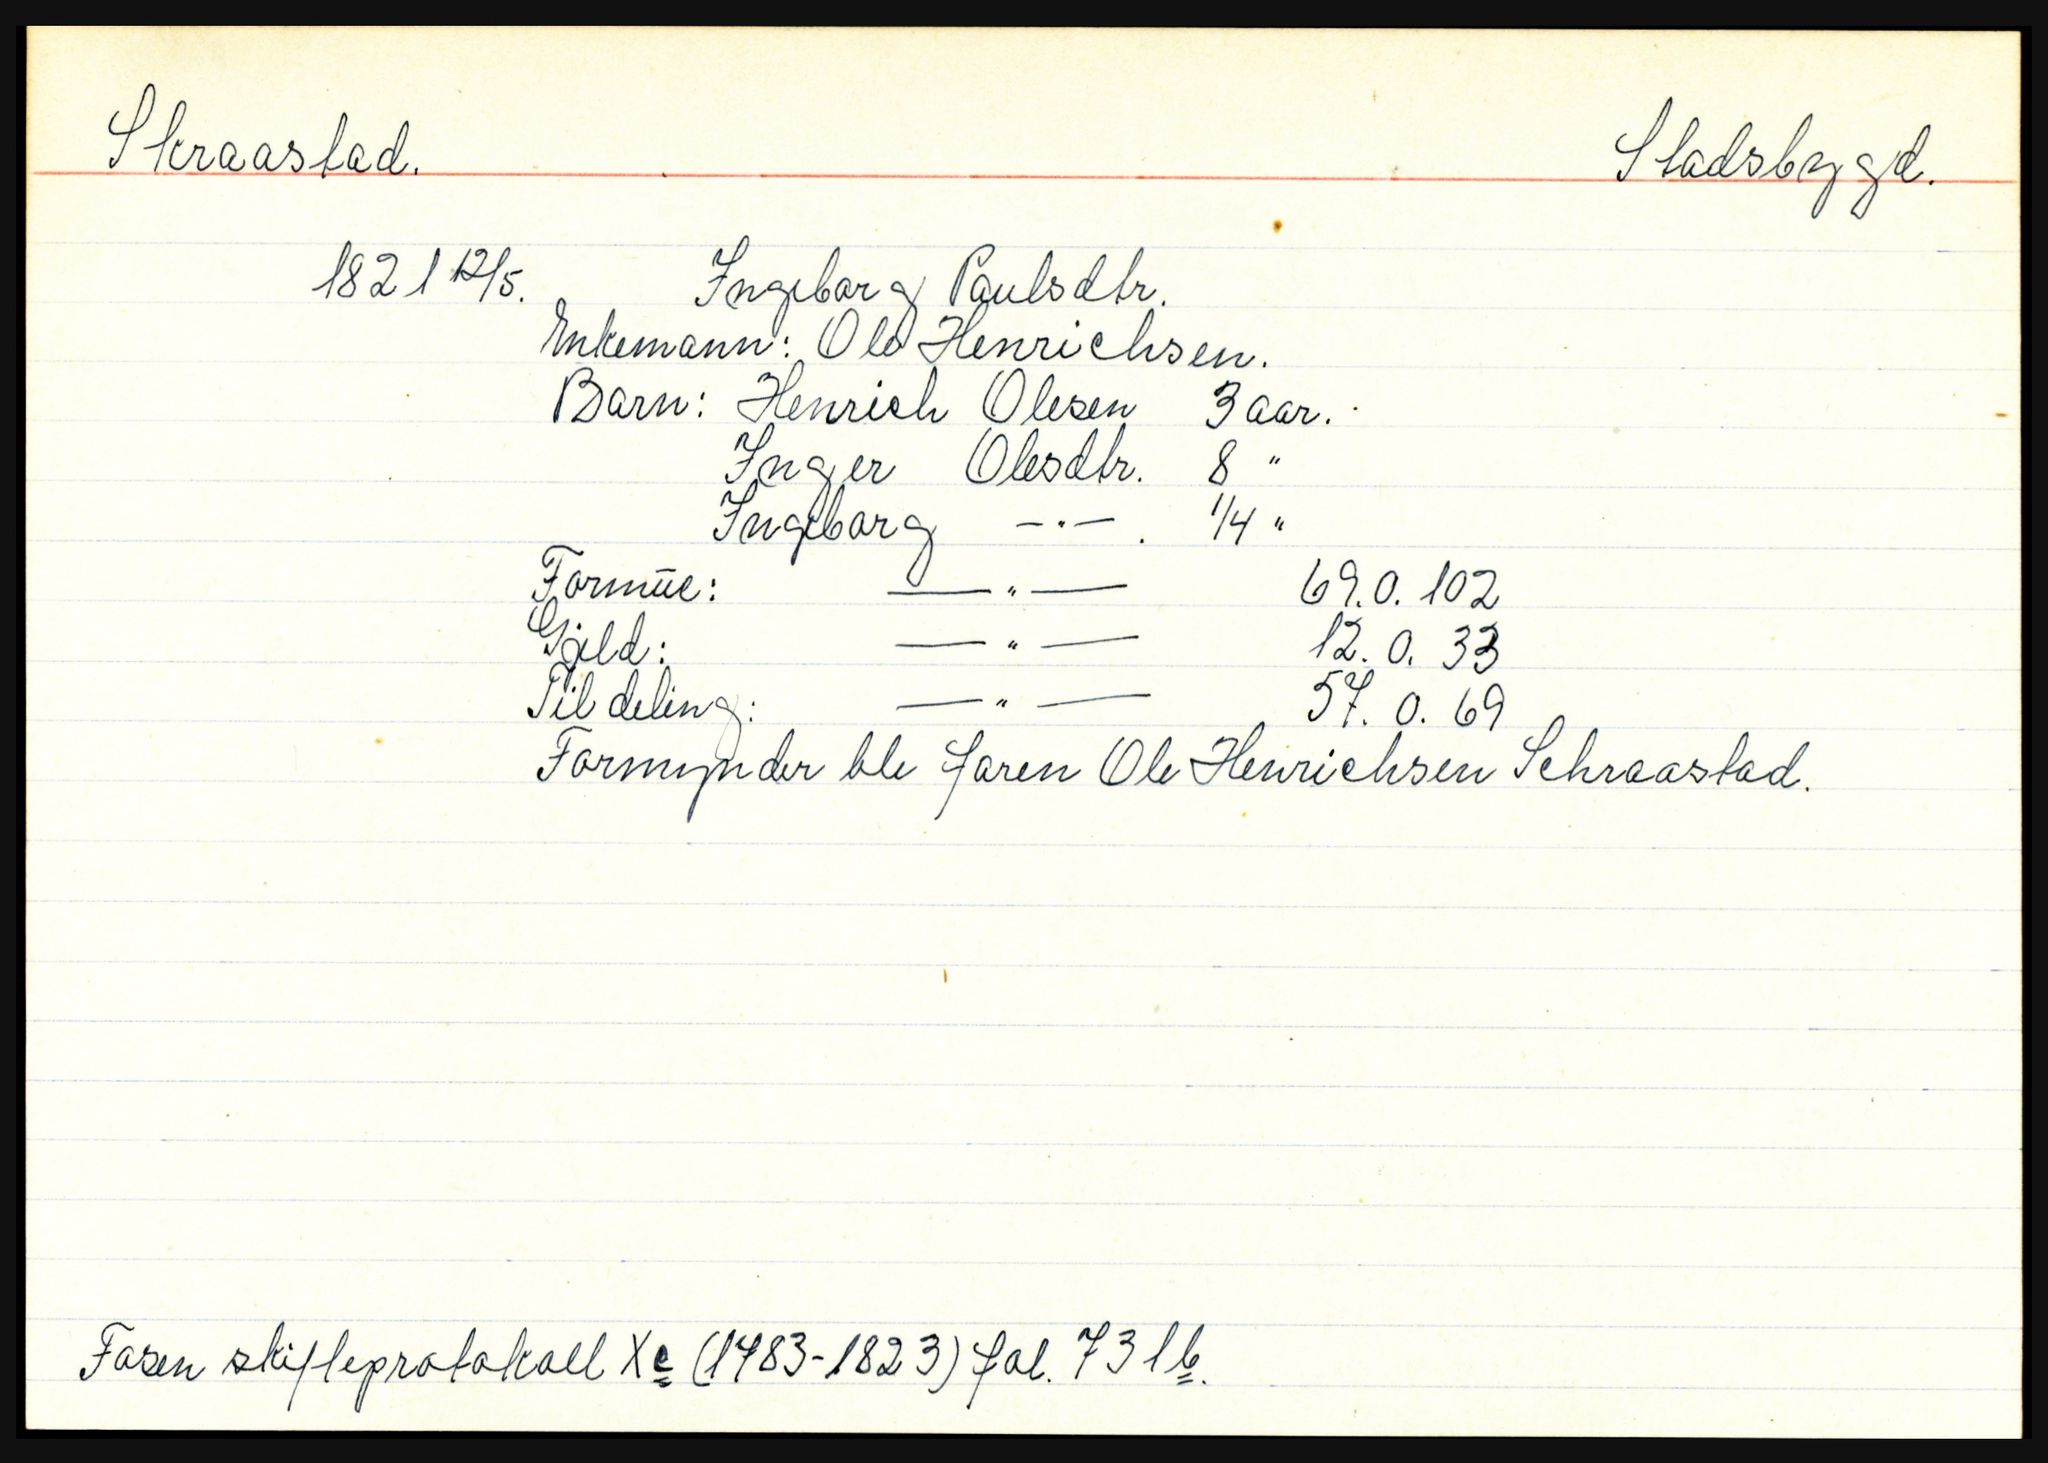 Skraastad. Stadsbygd.
1821 12/5. Ingeborg Paulsdtr.
Enkemann: Ole Henrichsen.
Barn: Henrich Olesen 3 aar.
Inger Olesdtr. 8 "
Ingeborg -"- . 1/4 "
Formue: —"— 69. 0. 102
Gjeld: —"— 12. 0. 33
Til deling: —"— 57. 0. 69
Formynder ble faren Ole Henrichsen Schraastad.
Fosen skifteprotokoll Xe (1783-1823) fol. 731b.